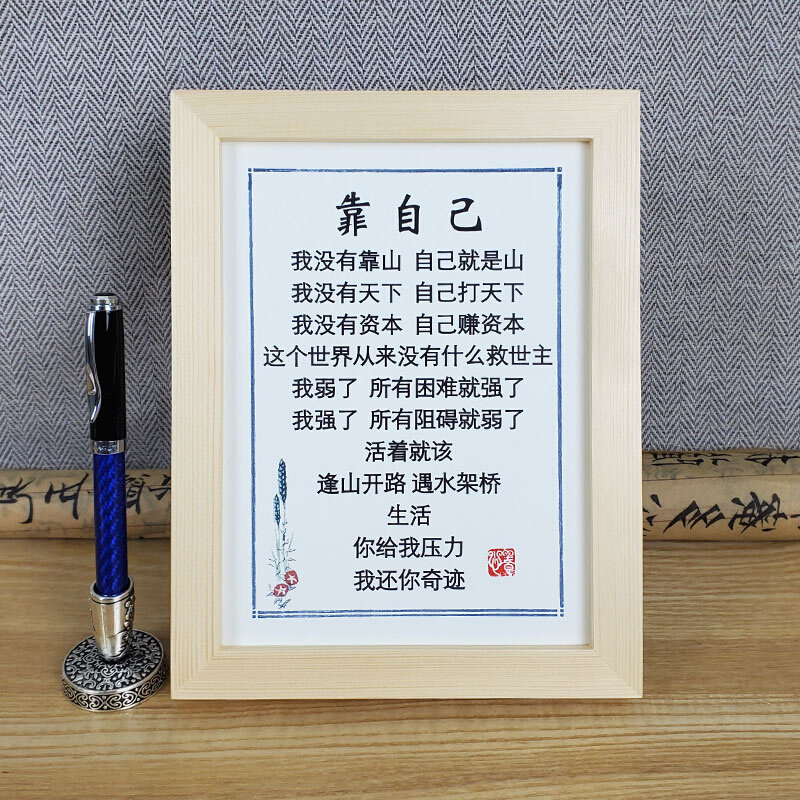 靠自己
我没有靠山 自己就是山
我没有天下 自己打天下
我没有资本 自己赚资本
这个世界从来没有什么救世主
我弱了 所有困难就强了
我强了 所有阻碍就弱了
活着就该
逢山开路 遇水架桥
生活
你给我压力
我还你奇迹